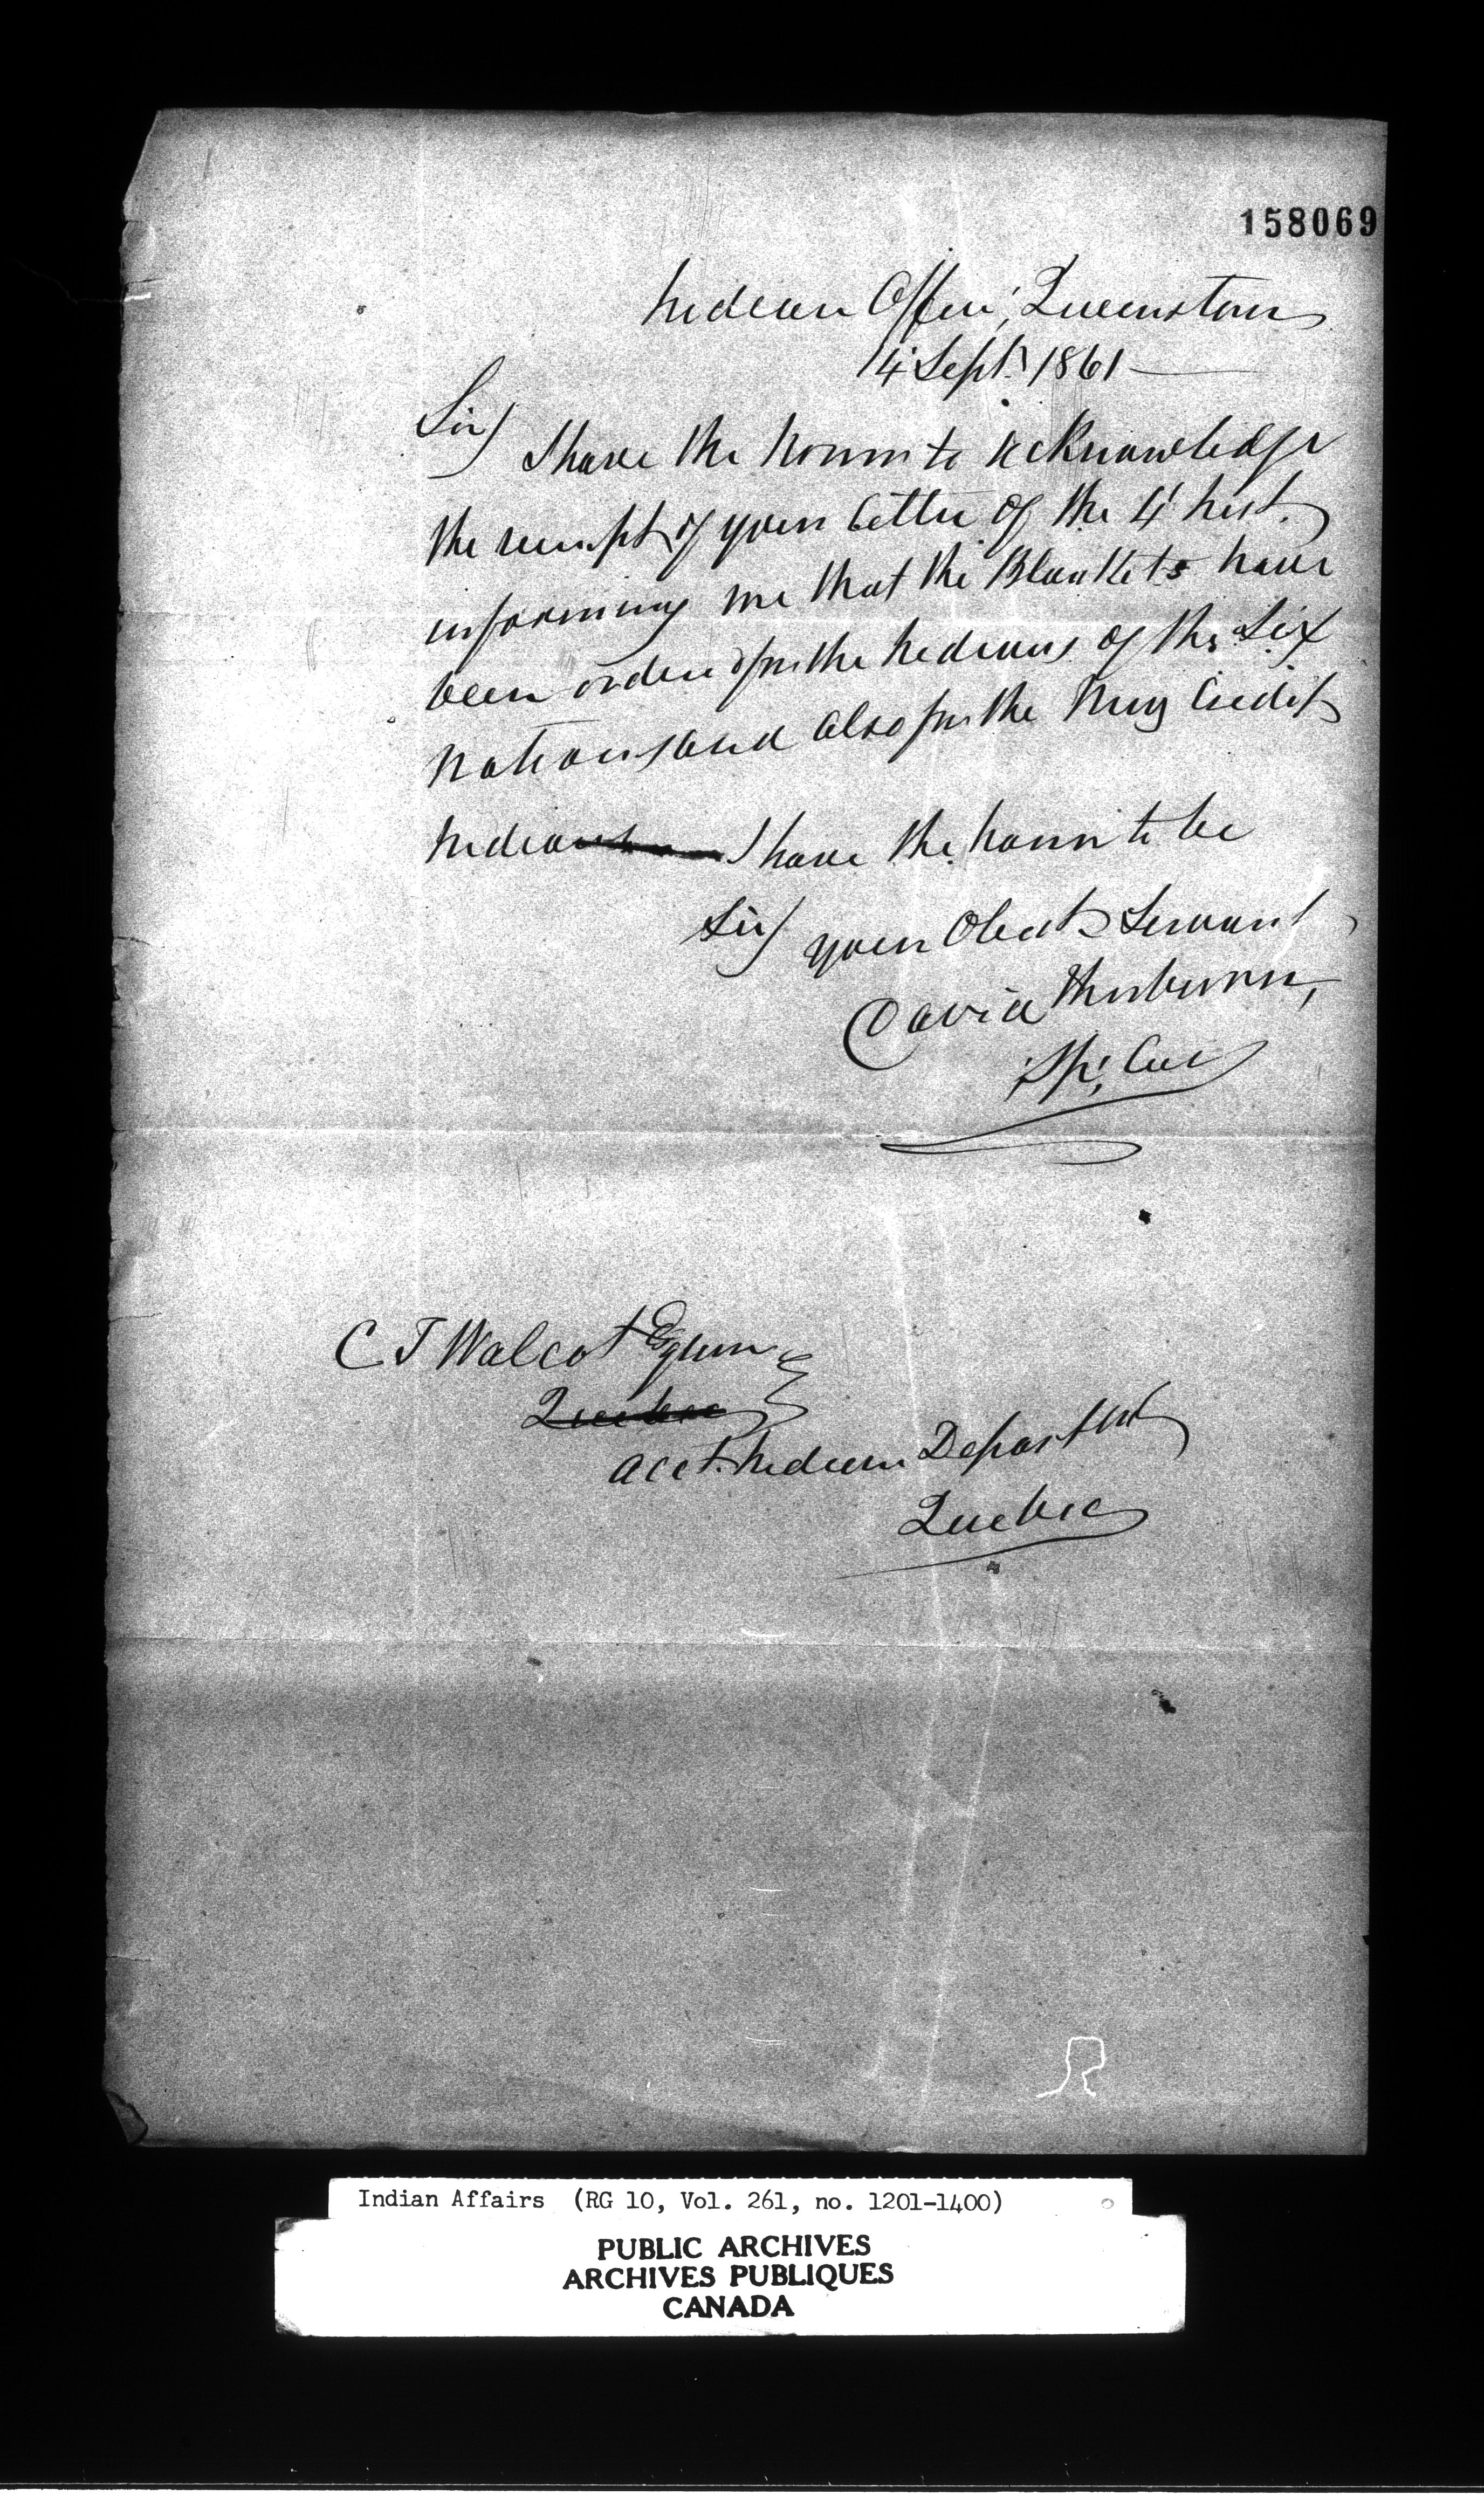 158069
Indian Office, Queenston
14 Sept. 1861
Sir
I have the honor to acknowledge
the receipt of your letter of the 4' Inst.
informing me that the Blankets have
been ordered for the Indians of the Six
Nations and also for the New Credit
Indians I have the honor to be
Sir your Obedt Servant
David Thorburn,
Sp; Com
C T Walcot Esquire
Quebec
Acct. Indian Department
Quebec
Indian Affairs (RG 10, Vol. 261, no. 1201-1400)
PUBLIC ARCHIVES
ARCHIVES PUBLIQUES
CANADA